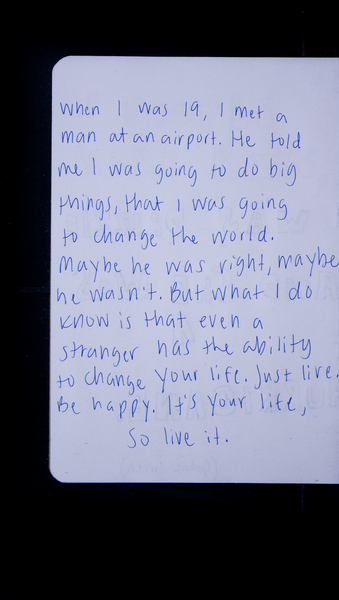 When I was 19, I met a
man at an airport. He told
me I was going to do big
things, that I was going
to change the world.
Maybe he was right, maybe
he wasn't. But what I do
know is that even a
stranger has the ability
to change your life. Just live.
Be happy. It's your life,
So live it.